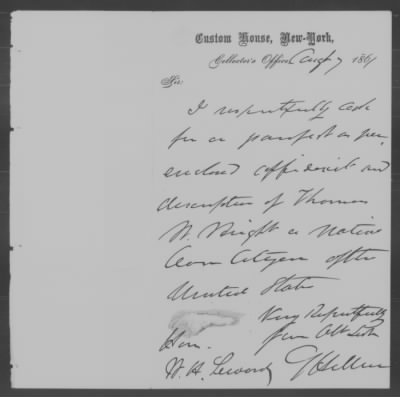 Custom House, New-York,
Collector's Office, Aug 7 1861
Sir
I respectfully ask
for a passport as per
enclosed affidavit and
description of Thomas
W. Wright a native
born Citizen of the
United States
Very Respectfully
Your Obt Svt
Hon.
W. H. Seward